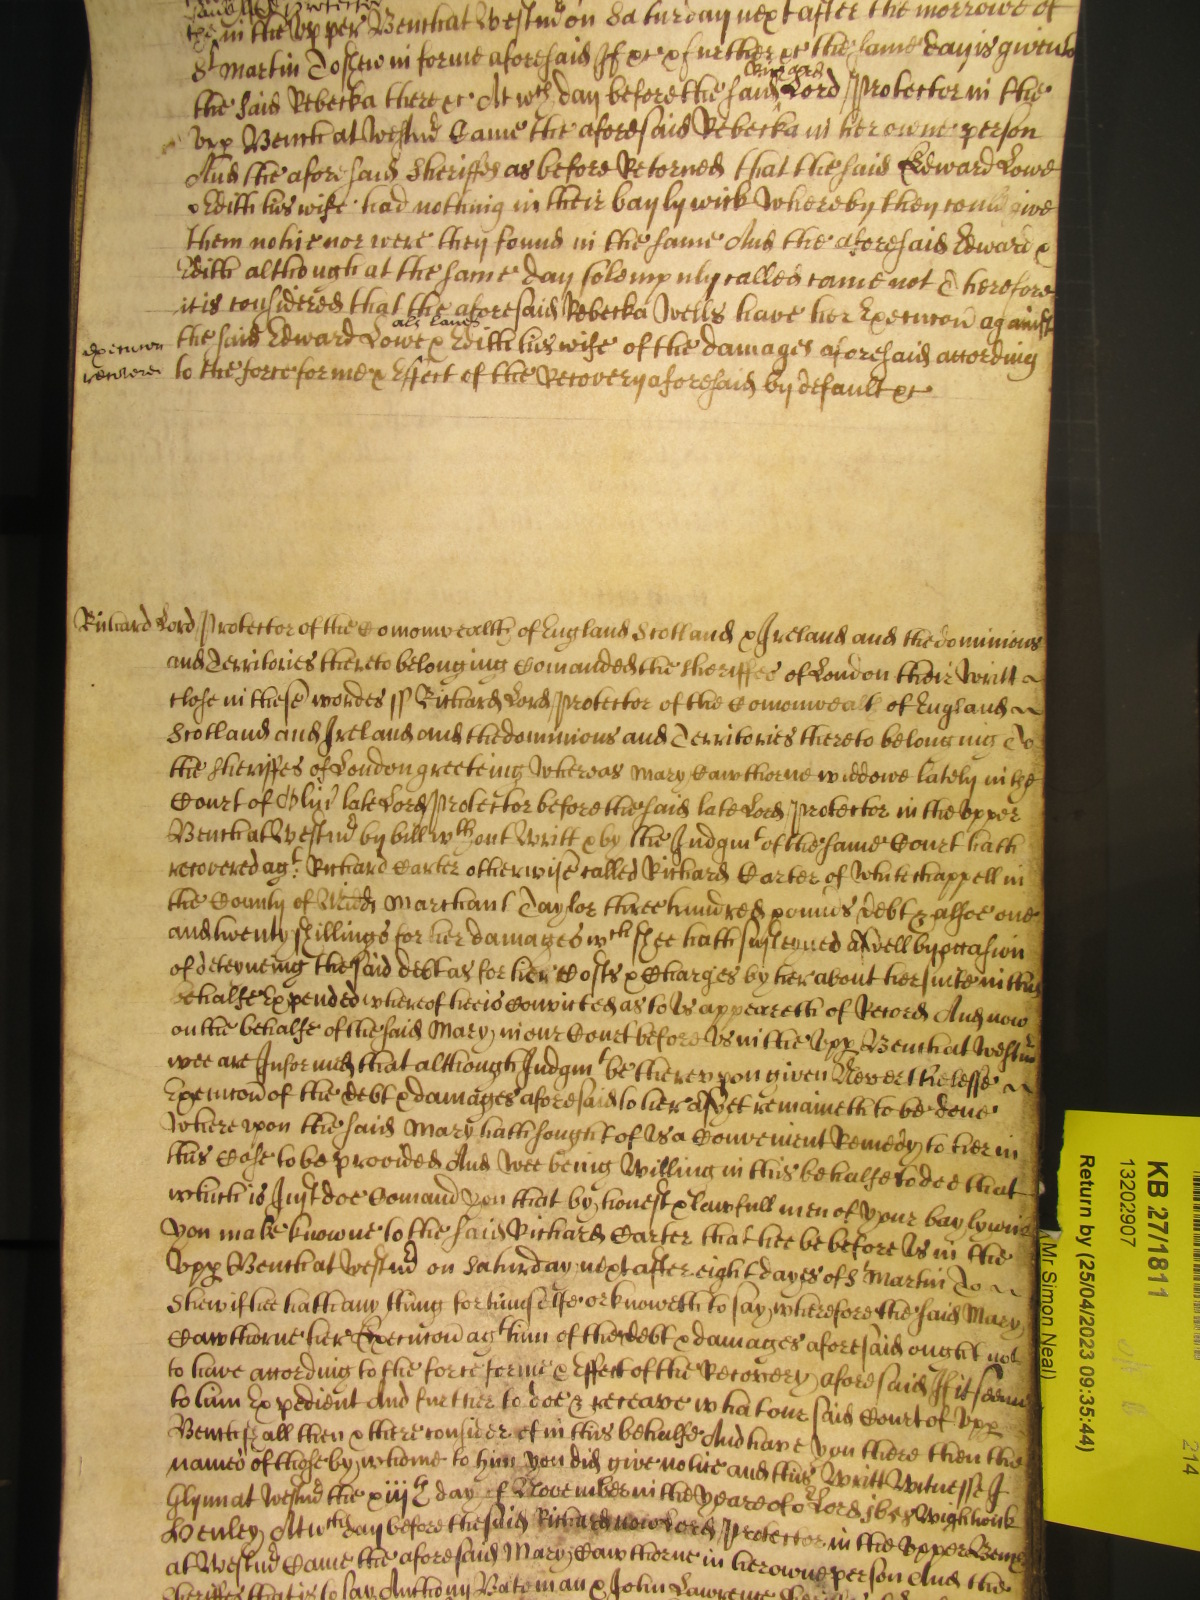 said Lord Protector
the in the Upper Bench at Westmr on Saturday next after the morrowe of
St Martin To shew in forme aforesaid If &c & further &c the same day is given to
the said Rebecka there &c At wch day before the said Richard Lord Protector in the
Upp Bench at Westmr Came the aforesaid Rebecka in her owne person
And the aforesaid Sheriffes as before Retorned that the said Edward Lowe
& Edith his wife had nothing in their baylywick Whereby they could give
them notice nor were they found in the same And the aforesaid Edward &
Edith although at the same day solempnly called came not Therefore
it is considered that the aforesaid Rebecka Wells have her Execucon against
the said Edward Lowe als Lane & Edith his wife of the damages aforesaid according
to the force forme & Effect of the Recovery aforesaid by default &c
Execucon
Richard Lord Protector of the Comonwealth of England Scotland & Ireland and the dominions
and Territories thereto belonging Comanded the Sheriffes of London their Writt
close in these wordes ss Richard Lord Protector of the Comonwealth of England
Scotland and Ireland and the dominions and Territories thereto belonging To
the Sheriffes of London greeteing Whereas Mary Cawthorne widdowe lately in the
Court of Olivr late Lord Protector before the said late Lord Protector in the Upper
Bench at Westmr by bill wthout Writt & by the Judgmt of the same Court hath
recovered agt Richard Carter otherwise called Richard Carter of Whitechappell in
the County of Midd Marchant Taylor three hundred pounds debt & alsoe one
and twenty shillings for her damages wch shee hath susteyned aswell by occasion
of deteyneing the said debt as for her Costs & Charges by her about her suite in this
behalfe Expended whereof hee is Convicted as to Us appeareth of Record And now
on the behalfe of the said Mary in our Court before Us in the Upp Bench at Westmr
wee are Informed that although Judgmt be thereupon given Neverthelesse
Execucon of the debt & damages aforesaid to her as yet remaineth to be done
Whereupon the said Mary hath sought of Us a Convenient Remedy to her in
this Case to be provided And Wee being Willing in this behalfe to doe that
which is Just doe Comand you that by honest & lawfull men of your baylywick
you make knowne to the said Richard Carter that hee be before Us in the
Upp Bench at Westmr on Saturday next after eight dayes of St Martin To
Shew if hee hath any thing for himselfe or knoweth to say wherefore the said Mary
Cawthorne her Execucon agt him of the debt & damages aforesaid ought not
to have according to the force forme & Effect of the Recovery aforesaid If it seeme
to him Expedient And further to doe & receave what our said Court of Upp
Bench shall then & there consider of in this behalfe And have you there then the
names of those by whome to him you did give notice and this Writt Witnesse J
Glynn at Westmr the xiijth day of November in the yeare of or Lord 1658 Wightwick
Henley At wch day before the said Richard now Lord Protector in the Upper Bench
at Westmr Came the aforesaid Mary Cawthorne in her owne person And the
Sheriffes that is to say Anthony Bateman & John Lawrence
KB 27/1811
1320907
Return by (25/04/2023 09:35:44)
Mr Simon Neal)
214